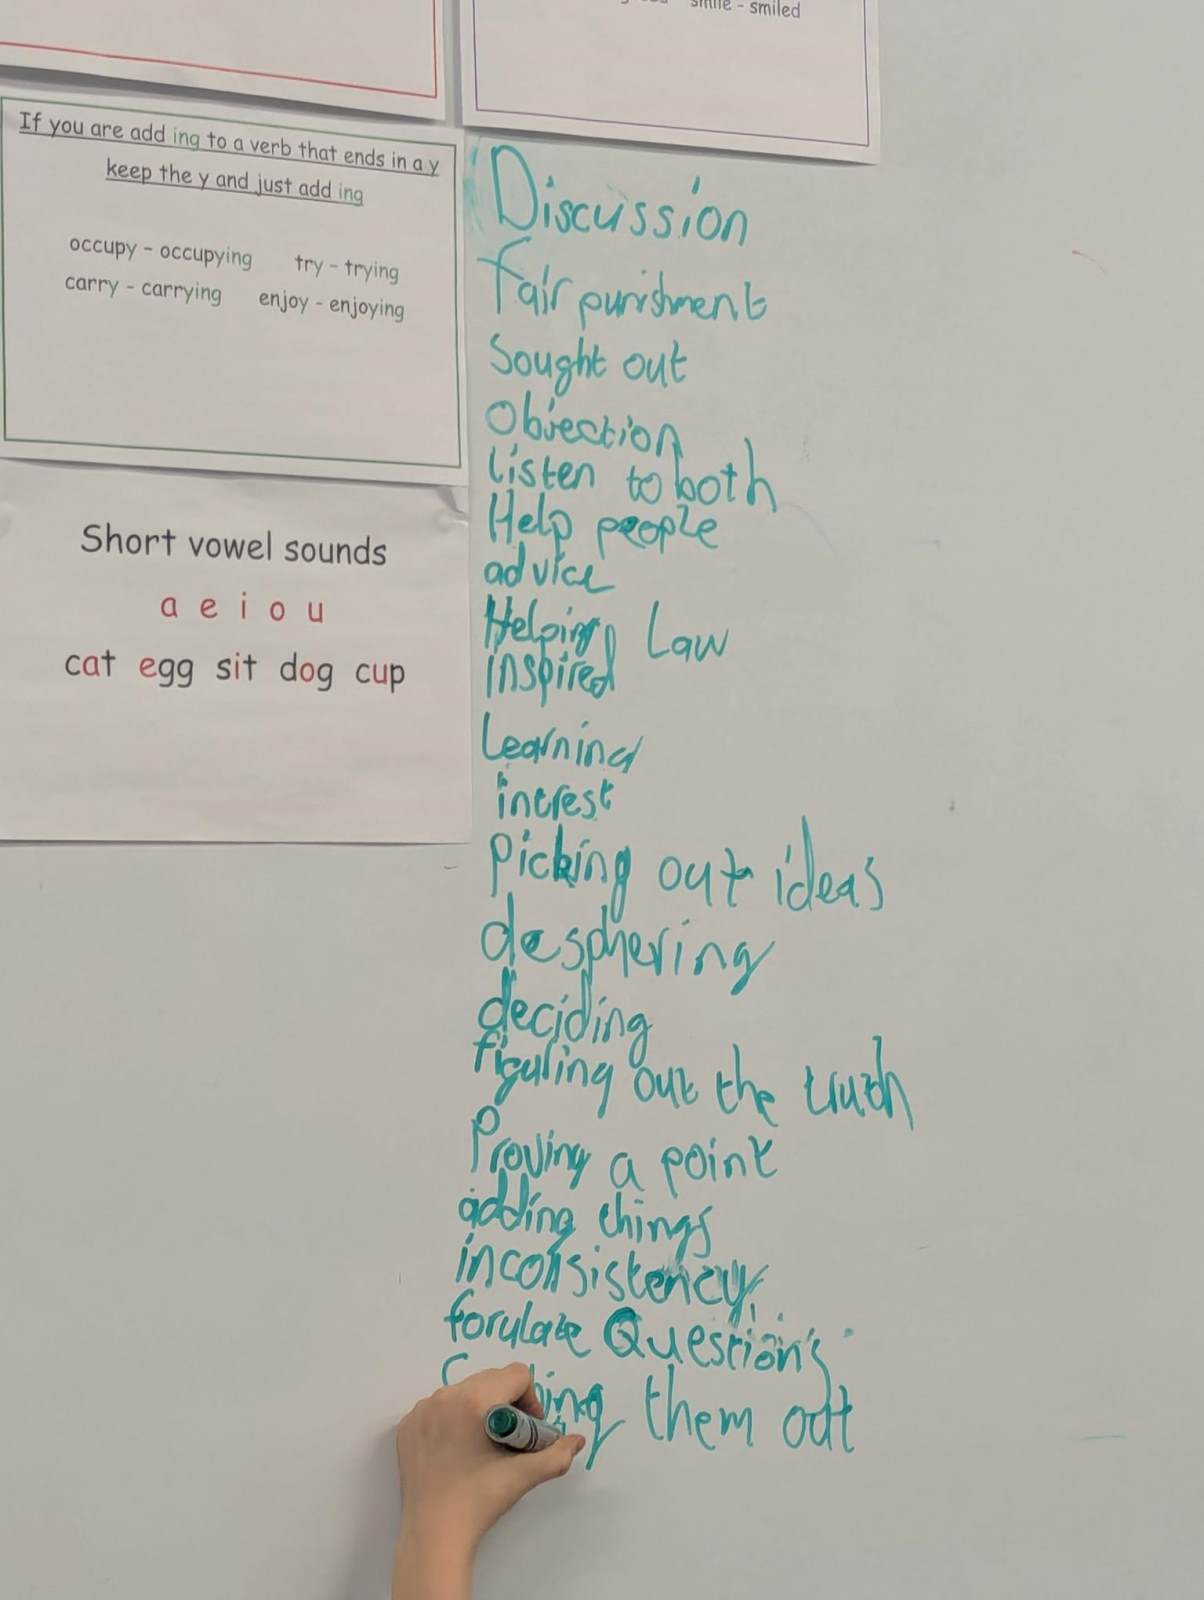 smile - smiled
If you are add ing to a verb that ends in a y
keep the y and just add ing
occupy - occupying try - trying
carry - carrying enjoy - enjoying
Short vowel sounds
a e i o u
cat egg sit dog cup
Discussion
fair punishment
Sought out
Objection
listen to both
Help people
advice
Helping Law
inspired
Learning
intrest
Picking out ideas
desphering
deciding
figuring out the truth
Proving a point
adding things
inconsistency
forulate Questions
them out